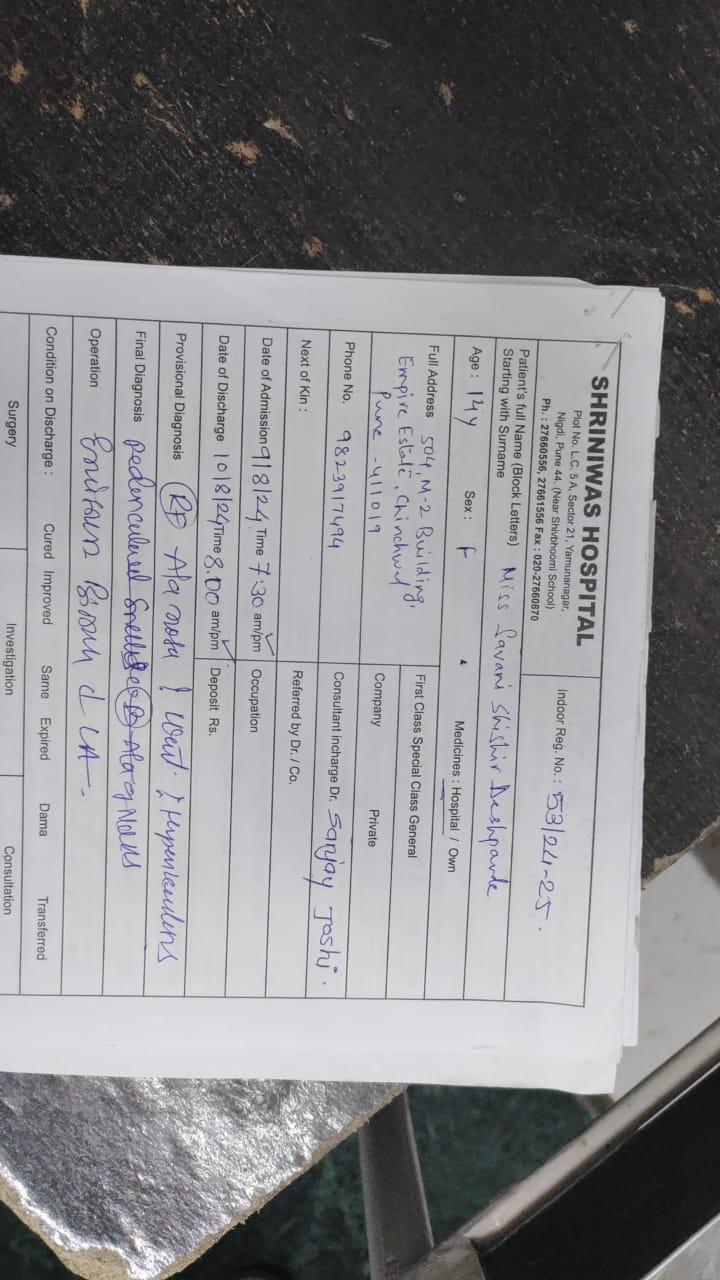 SHRINIWAS HOSPITAL
Plot No. L.C. 5 A, Sector 21, Yamunanagar,
Nigdi, Pune 44. (Near Shivbhoomi School)
Ph. : 27660556, 27661556 Fax : 020-27660870
Indoor Reg. No. : 53/24-25.
Patient's full Name (Block Letters) Miss Savani Shishir Deshpande
Starting with Surname
Age : 14y Sex : F Medicines : Hospital / Own
Full Address 504, M-2 Building,
Empire Estate, Chinchwad
Pune - 411019
First Class Special Class General
Company Private
Phone No. 9823917494
Consultant Incharge Dr. Sanjay Joshi.
Next of Kin :
Referred by Dr. / Co.
Date of Admission 9/8/24 Time 7:30 am/pm
Occupation
Date of Discharge 10/8/24 Time 8.00 am/pm
Deposit Rs.
Provisional Diagnosis Ala
Final Diagnosis
Operation
Condition on Discharge : Cured Improved Same Expired Dama Transferred
Surgery Investigation Consultation